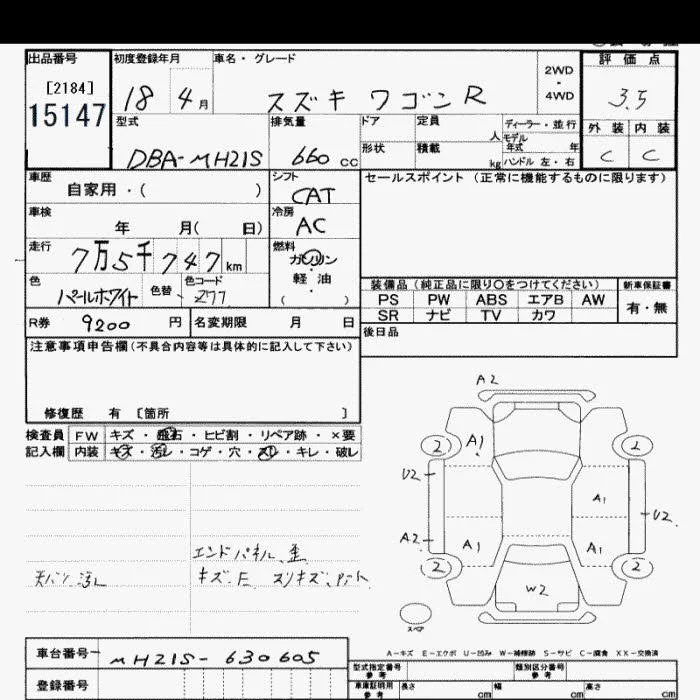 出品番号 初度登録年月 車名・グレード 評価点
[2184] 2WD
15147 18 4月 スズキ ワゴンR 4WD 3.5
型式 排気量 ドア 定員 ディーラー・並行 外装 内装
人 モデル年式 年
DBA-MH21S 660cc 形状 積載 kg ハンドル 左・右 C C
車歴 シフト セールスポイント (正常に機能するものに限ります)
自家用・( ) CAT
車検 冷房
年 月( 日) AC
走行 燃料
7万5千747km ガソリン
色 色替 色コード 軽油
パールホワイト 277 ( )
装備品(純正品に限り○をつけてください) 新車保証書
PS PW ABS エアB AW 有・無
SR ナビ TV カワ
R券 9200円 名変期限 月 日
後日品
注意事項申告欄(不具合内容等は具体的に記入して下さい)
修復歴 有 [箇所 ]
検査員 FW キズ・飛石・ヒビ割・リペア跡・×要
記入欄 内装 キズ・汚レ・コゲ・穴・スリ・キレ・破レ
A2
A1
2 2
U2
A1
U2
A2
A1 A1
2 2
W2
スペア
エンドパネル歪
天バリ汚レ キズ、E スリキズ、
A-キズ E-エクボ U-凹み W-補修跡 S-サビ C-腐食 XX-交換済
車台番号 MH21S-630605
型式指定番号 参考 類別区分番号 参考
登録番号 車庫証明用 参考 長さ cm 幅 cm 高さ cm